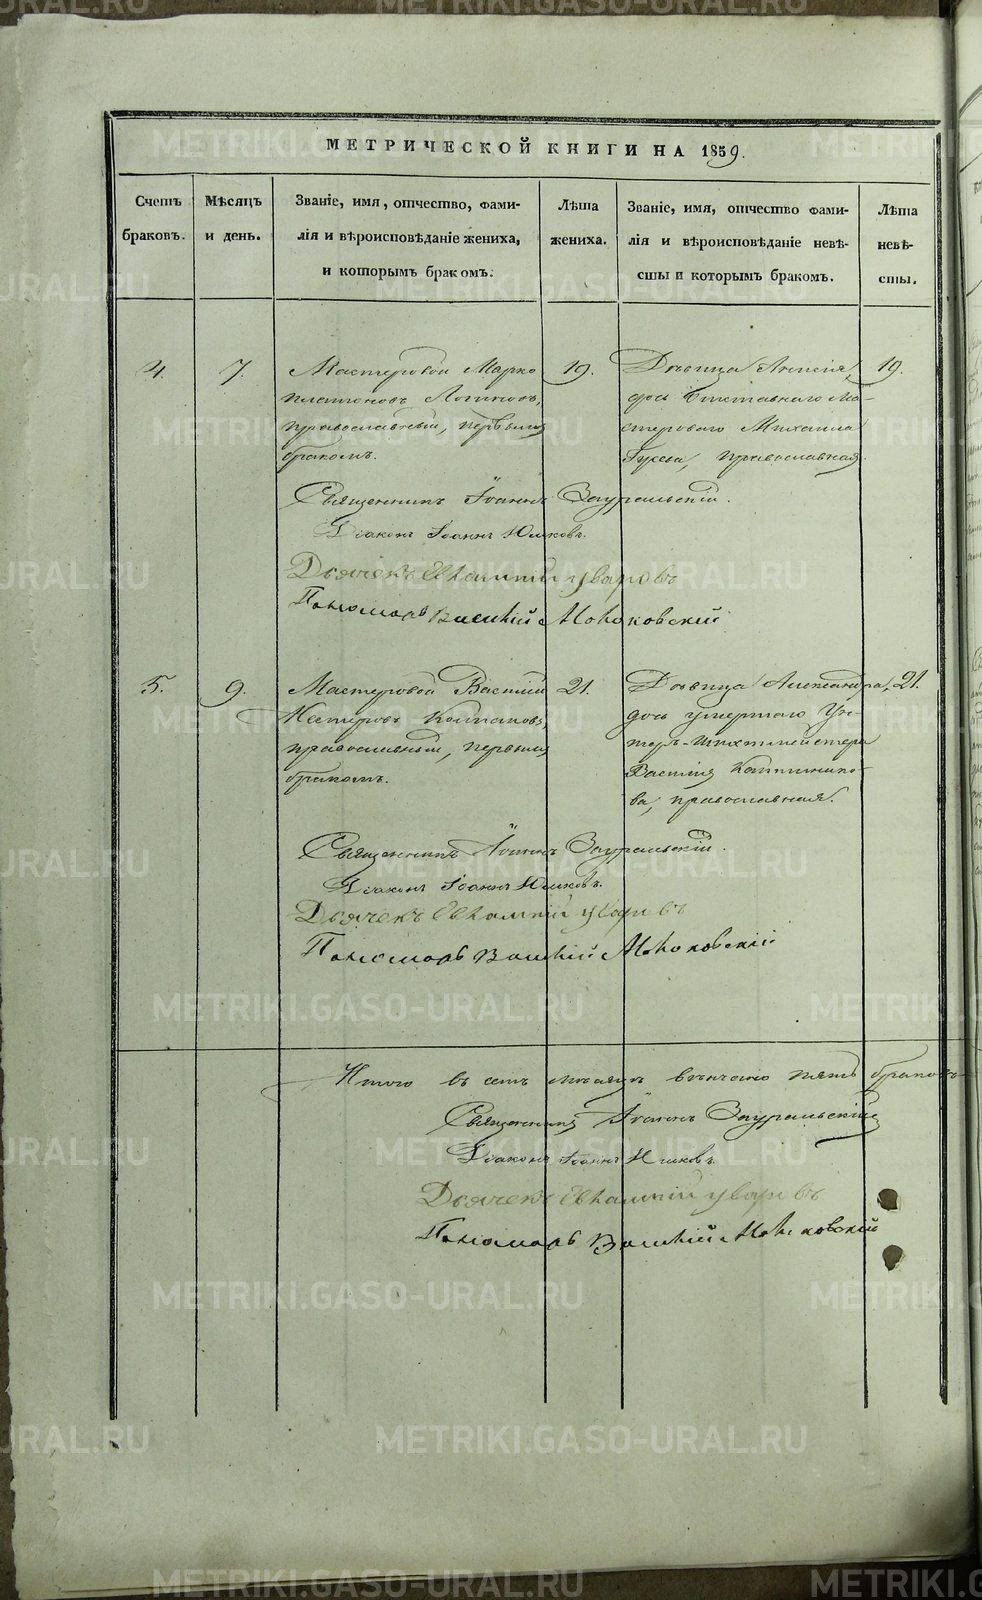 МЕТРИЧЕСКОЙ КНИГИ НА 1859.
Счетъ браковъ.
Мѣсяцъ и день.
Званіе, имя, отчество, фами-
лія и вѣроисповѣданіе жениха,
и которымъ бракомъ.
Лѣта жениха.
Званіе, имя, отчество фами-
лія и вѣроисповѣданіе невѣ-
сты и которымъ бракомъ.
Лѣта невѣ-
сты.
4.
7.
Мастеровой Марко
Платоновъ Логиновъ,
православный, первымъ
бракомъ.
19.
Дѣвица
дочь отставнаго Ма-
стероваго Михаила
Гусева, православная.
19.
Священникъ Іоаннъ Зауральскій.
Діаконъ Іоаннъ Юшковъ.
Дьячекъ Евѳимій Уваровъ
Пономарь Василій
5.
9.
Мастеровой Василій
Нестеровъ
православный, первымъ
бракомъ.
21.
Дѣвица Александра,
дочь умершаго Ун-
теръ-шихтмейстера
Василія
ва, православная.
21.
Священникъ Іоаннъ Зауральскій.
Діаконъ Іоаннъ Юшковъ.
Дьячекъ Евѳимій Уваровъ
Пономарь Василій
Итого въ семъ мѣсяцѣ вѣнчано пять браковъ
Священникъ Іоаннъ Зауральскій
Діаконъ Іоаннъ Юшковъ.
Дьячекъ Евѳимій Уваровъ
Пономарь Василій
METRIKI.GASO-URAL.RU